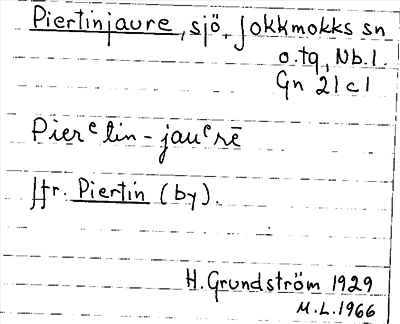 Piertinjaure, sjö. Jokkmokks sn
o. tg, Nb. l.
Gn 21 c1
Pierᵉlin-jauᵉrē
Jfr. Piertin (by).
H. Grundström 1929
M.L. 1966